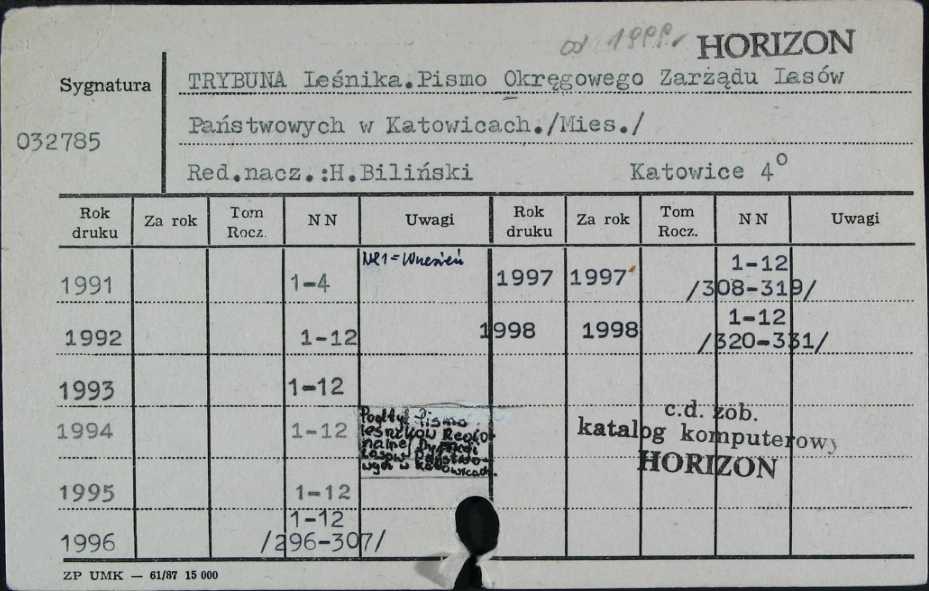 od 1999r HORIZON
Sygnatura
TRYBUNA Leśnika.Pismo Okręgowego Zarządu Lasów
032785
Państwowych w Katowicach./Mies./
Red.nacz.:H.Biliński Katowice 4°
Rok druku Za rok Tom Rocz. N N Uwagi Rok druku Za rok Tom Rocz. N N Uwagi
1991 1-4 NR 1 = Wrzesień 1997 1997 1-12
/308-319/
1992 1-12 1998 1998 1-12
/320-331/
1993 1-12
1994 1-12
Podtyt. Pismo
leśników Regio-
nalnej Dyrekcji
Lasów Państwo-
wych w Katowicach.
c.d. zob.
katalog komputerowy
HORIZON
1995 1-12
1996 1-12
/296-307/
ZP UMK — 61/87 15 000